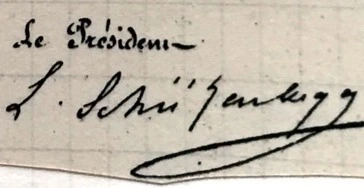 Le Président
L. Schützenberger